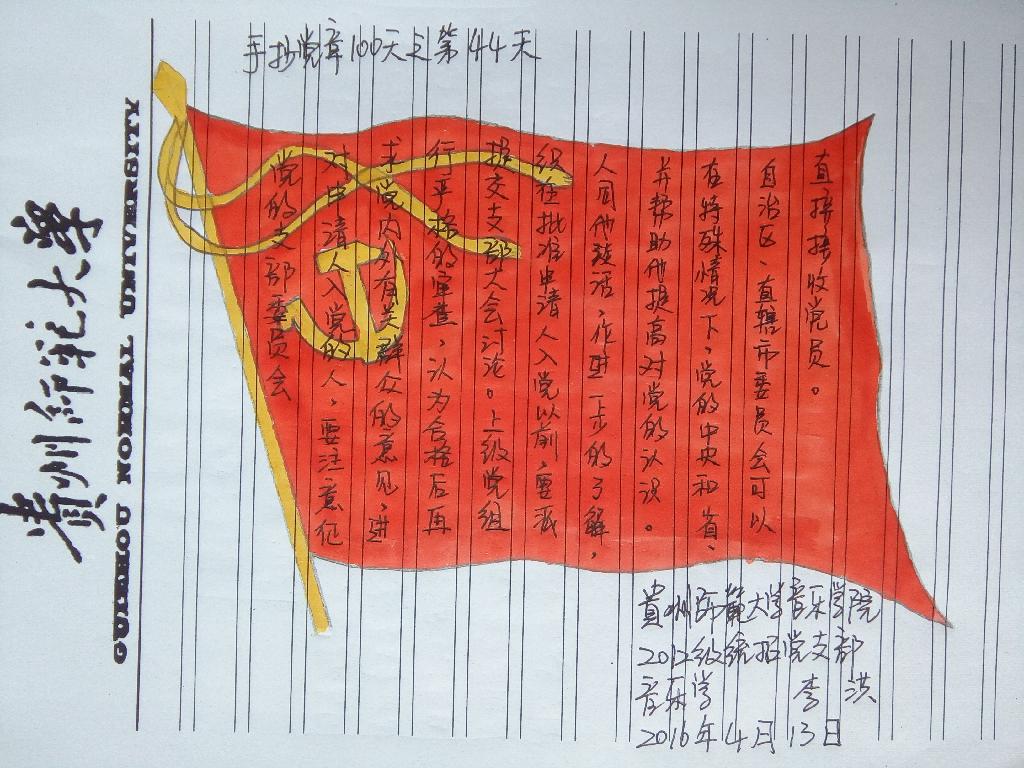 貴州師範大學
GUIZHOU NORMAL UNIVERSITY
手抄党章100天之第44天
党的支部委员会
对申请入党的人，要注意征
求党内外有关群众的意见，进
行严格的审查，认为合格后再
提交支部大会讨论。上级党组
织在批准申请人入党以前，要派
人同他谈话，作进一步的了解，
并帮助他提高对党的认识。
在特殊情况下，党的中央和省、
自治区、直辖市委员会可以
直接接收党员。
貴州师範大学音乐学院
2012级统招党支部
音乐学 李洪
2016年4月13日